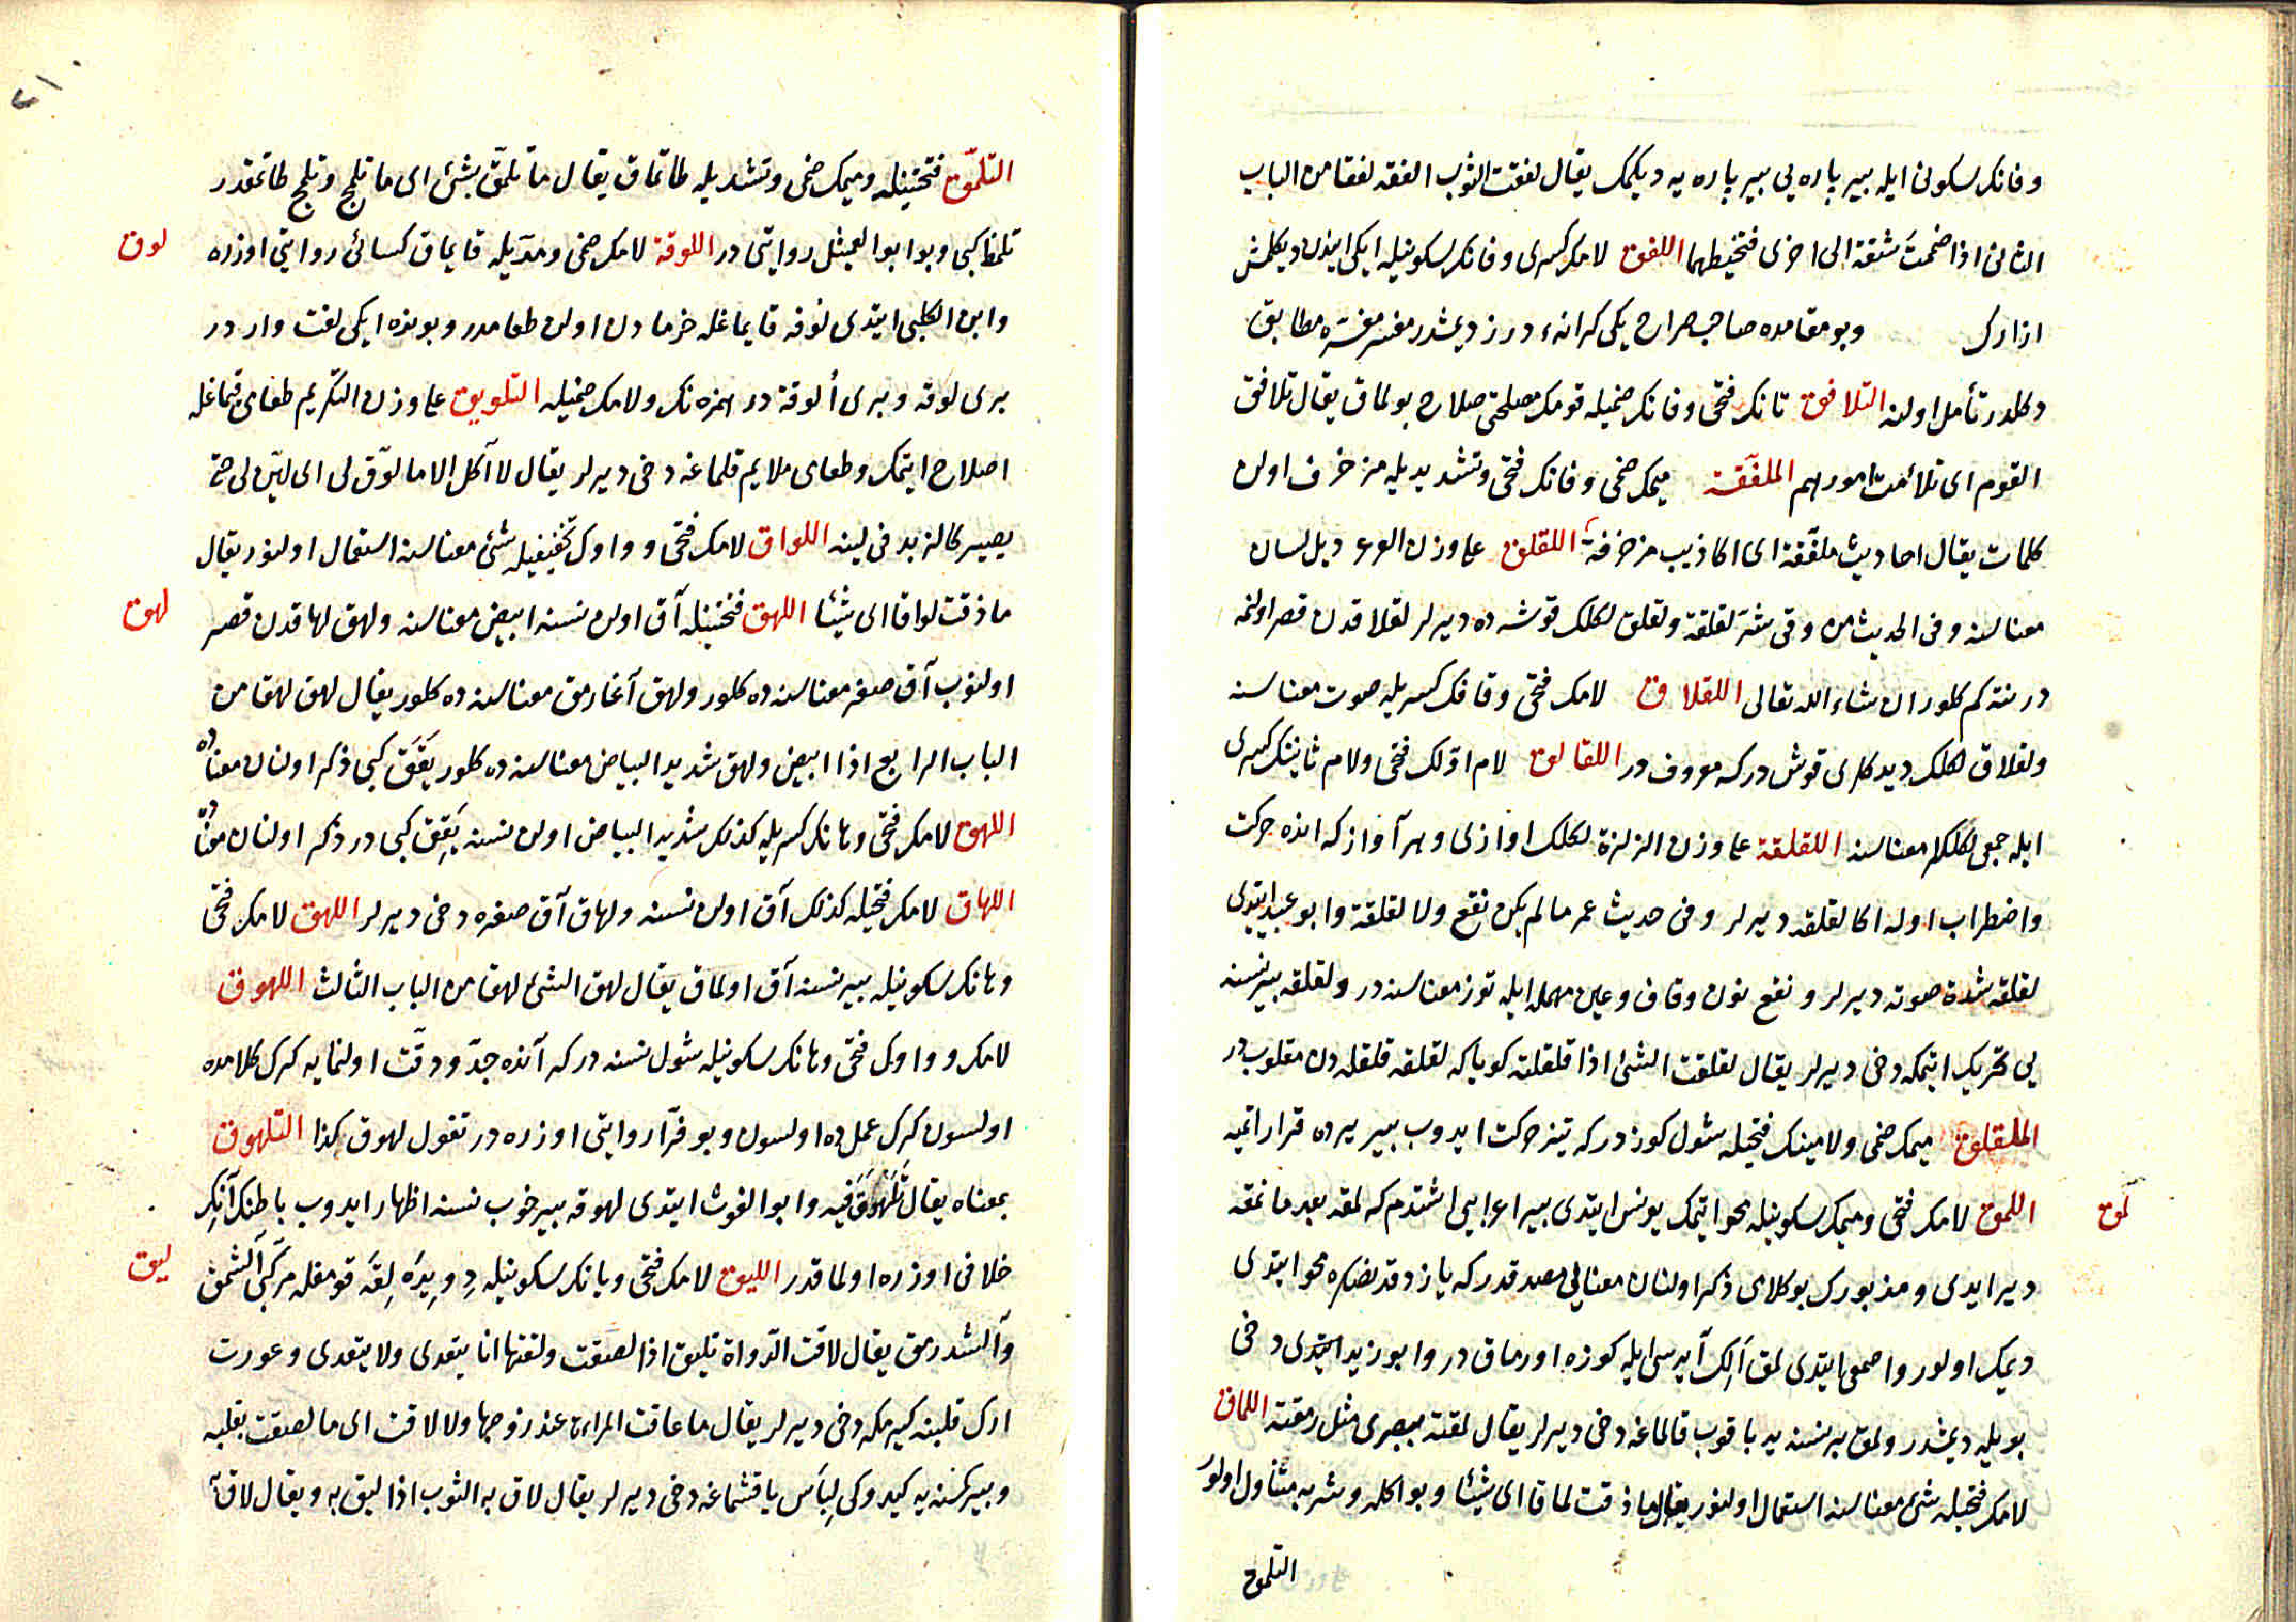 وفانك سكونی ایله بیر پاره یی بیر پاره یه دیكمك یقال لفقت الثوب الفقه لفقا من الباب
الثانی اذا ضممت شقة الی اخری فتخیطهما اللفق لامك كسری وفانك سكونیله ایكی اینن دیكلمش
ازارك وبو مقامده صاحب صراح یكی كرانهٔ درز دیمشدر مفسر مفسره مطابق
دكلدر تأمل اولنه التلافق تانك فتحی وفانك ضمیله قومك مصلحتی صلاح بولماق یقال تلافق
القوم ای تلائمت امورهم الملفّقة میمك ضمی وفانك فتحی وتشدیدیله مزخرف اولن
كلمات یقال احادیث ملفّقة ای اكاذیب مزخرفة اللقلق علی وزن دیل لسان
معناسنه وفی الحدیث من وقی شر لقلقه ولقلق لكلك قوشه ده دیرلر لقلاقدن قصر اولنمه
در نته كم كلور ان شاء الله تعالی اللقلاق لامك فتحی وقافك كسریله صوت معناسنه
ولقلاق لكلك دیدكلری قوش در كه معروف در اللقالق لام اوّلك فتحی ولام ثانینك كسری
ایله جمعی لكلكلر معناسنه اللقلقة علی وزن الزلزلة لكلك اوازلی وهر آواز كه انده حركت
واضطراب اوله اكا لقلقه دیرلر وفی حدیث عمر مالم یكن نقع ولا لقلقة وابو عبید ایتدی
لقلقه شدة صوته دیرلر ونقع نون وقاف وعین مهمله ایله توز معناسنه در ولقلقه بیر نسنه
یی تحریك ایتمكه دخی دیرلر یقال لقلقت الشئ اذا قلقلته كویا كه لقلقه قلقله دن مقلوب در
الملقلق میمك ضمی ولامینك فتحیله شول كوز در كه تیز حركت ایدوب بیر یرده قرار اتمیه
لمق
اللمق لامك فتحی ومیمك سكونیله محو ایتمك یونس ایتدی بیر اعرابیی اشتدم كه لمقه بعد ما نمقه
دیر ایدی ومذبورك بو كلامی ذكر اولنان معنایی مصدقدر كه یازدقدنصكره محو ایتدی
دیمك اولور واصمعی ایتدی لمق الك آیه سی ایله كوزه اورماق در وابو زید ایتدی دخی
بویله دیمشدر ولمق بر نسنه یه باقوب قالماغه دخی دیرلر یقال لمقته ببصری مثل رمقته اللماق
لامك فتحیله شئ معناسنه استعمال اولنور یقال ما ذقت لماقا ای شیئا وبو اكله وشربه متناول اولور
التلمق
التلمّق فتحتینله ومیمك ضمی وتشدیدیله طاتماق یقال ما تلمّق بشئ ای ما تلمج وتلمج طاتمقدر
لوق
تلمظ كبی وبو ابو العمیثل روایتی در اللوقة لامك ضمی ومدّیله قایماق كسائی روایتی اوزره
وابن الكلبی ایتدی لوقه قایماغله خرمادن اولن طعامدر وبونده ایكی لغت وار در
بری لوقه وبری ألوقة در همزه نك ولامك ضمیله التلویق علی وزن التكریم طعامی قیماغله
اصلاح ایتمك وطعامی ملایم قلماغه دخی دیرلر یقال لا آكل الا ما لوّق لی ای لیّن لی حتی
یصیر كالزبد فی لینه اللواق لامك فتحی وواوك تخفیفیله شئ معناسنه استعمال اولنور یقال
لهق
ماذقت لواقا ای شیئا اللهق فتحتینله آق اولن نسنه ابیض معناسنه ولهق لهاقدن قصر
اولنوب آق صغر معناسنه ده كلور ولهق آغارمق معناسنه ده كلور یقال لهق لهقا من
الباب الرابع اذا ابیض ولهق شدید البیاض معناسنه ده كلور یَقَق كبی ذكر اولنان معناده
اللهق لامك فتحی وهانك كسریله كذلك شدید البیاض اولن نسنه یَقِق كبی در ذكر اولنان معناده
اللهاق لامك فتحیله كذلك آق اولن نسنه ولهاق آق صغره دخی دیرلر اللهق لامك فتحی
وهانك سكونیله بیر نسنه آق اولماق یقال لهق الشئ لهقا من الباب الثالث اللهوق
لامك وواوك فتحی وهانك سكونیله شول نسنه در كه آنده جدّ ودقّت اولنمایه كرك كلامده
اولسون كرك عملده اولسون وبو فرّا روایتی اوزره در تقول لهوق كذا التلهوق
بمعناه یقال تَلَهْوَقَ فیه وابو الغوث ایتدی لهوقه بیر خوب نسنه اظهار ایدوب باطنك آنك
لیق
خلافی اوزره اولماقدر اللیق لامك فتحی ویانك سكونیله دویده لیقه قومغله مركّب آلشمق
وآلشدرمق یقال لاقت الدّواة تلیق اذا لصقت ولقتها انا یتعدی ولا یتعدی وعورت
ارك قلبنه كیرمكه دخی دیرلر یقال ما عاقت المراءة عند زوجها ولا لاقت ای ما لصقت بقلبه
وبیر كسنه یه كیدوكی لباس یاقشماغه دخی دیرلر یقال لاق به الثوب اذا لبق به ویقال لاق